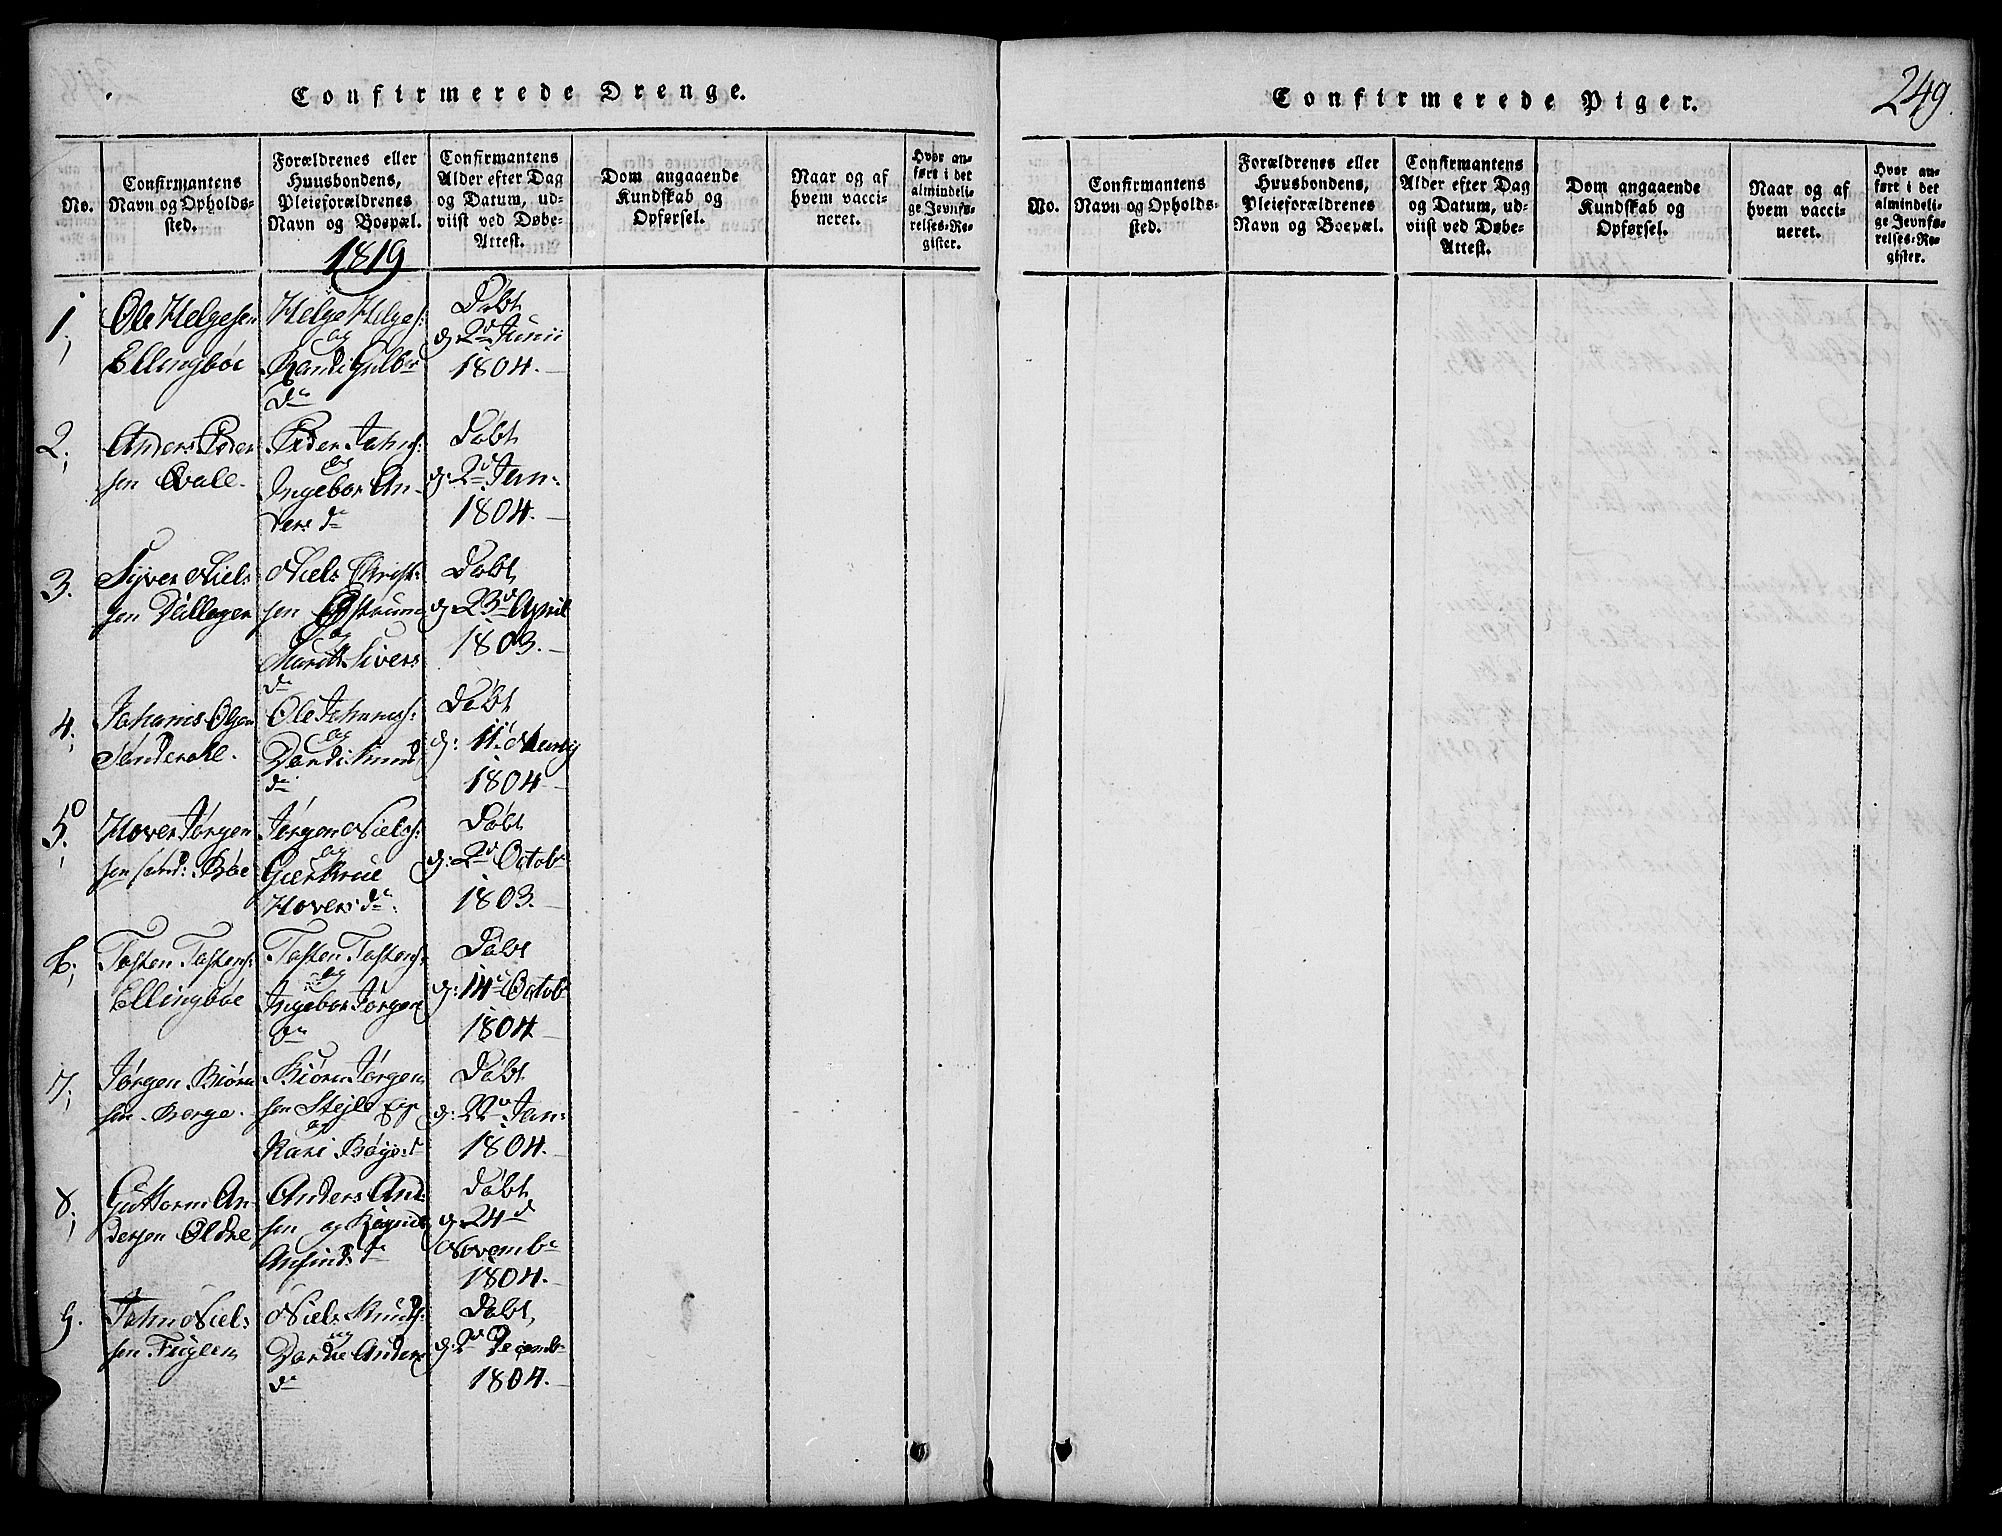 Confirmerede Drenge.
No.
Confirmantens
Navn og Opholds-
sted.
Forældrenes eller
Huusbondens,
Pleieforældrenes
Navn og Boepæl.
Confirmantens
Alder efter Dag
og Datum, ud-
viist ved Døbe-
Attest.
Dom angaaende
Kundskab og
Opførsel.
Naar og af
hvem vacci-
neret.
Hvor an-
ført i det
almindeli-
ge Jevnfø-
relses-Re-
gister.
1819
1,
Ole Helgesen
Ellingbøe
Helge Helges:
og
Randi Gulb
dr
Døbt
d: 2d Junii
1804.
2,
Anders Peder
sen Qvale.
Peder Johns:
og
Ingebor An-
ders dr
Døbt
d: 2d Jan:
1804.
3.
Syver Niels
sen
Niels Christ:
sen
og
Maritt Sivers
dr
Døbt
d: 23d April
1803.
4,
Johanis Olsen
Ole Johanss:
og
Dordi Knud
dr
Døbt
d: 11
1804
5,
Hover Jørgen
sen Sand: Bøe
Jørgen Niels:
og
Giertrue
Hovers dr.
Døbt
d: 2d Octobr
1803.
6,
Tosten Tostens:
Ellingbøe
Tosten Tostens:
og
Ingebor Jørgen
dr
Døbt
d: 14d Octobr
1804
7,
Jørgen Biørn
sen Berge.
Biørn Jørgen
sen
og
Kari
Døbt
d: 22d Jan:
1804.
8,
Guttorm An-
dersen Oldre
Anders And:
sen og Ragnild
Anfinds dr
Døbt
d: 24d
Novembr
1804.
9.
John Niels
sen Fuglem
Niels Knuds:
og
Dordie Anders
dr
Døbt,
d: 2d Decembr
1804.
Confirmerede Piger.
249.
No.
Confirmantens
Navn og Opholds-
sted.
Forældrenes eller
Huusbondens,
Pleieforældrenes
Navn og Boepæl.
Confirmantens
Alder efter Dag
og Datum, ud-
viist ved Døbe-
Attest.
Dom angaaende
Kundskab og
Opførsel.
Naar og af
hvem vacci-
neret.
Hvor an-
ført i det
almindeli-
ge Jevnfø-
relses-Re-
gister.